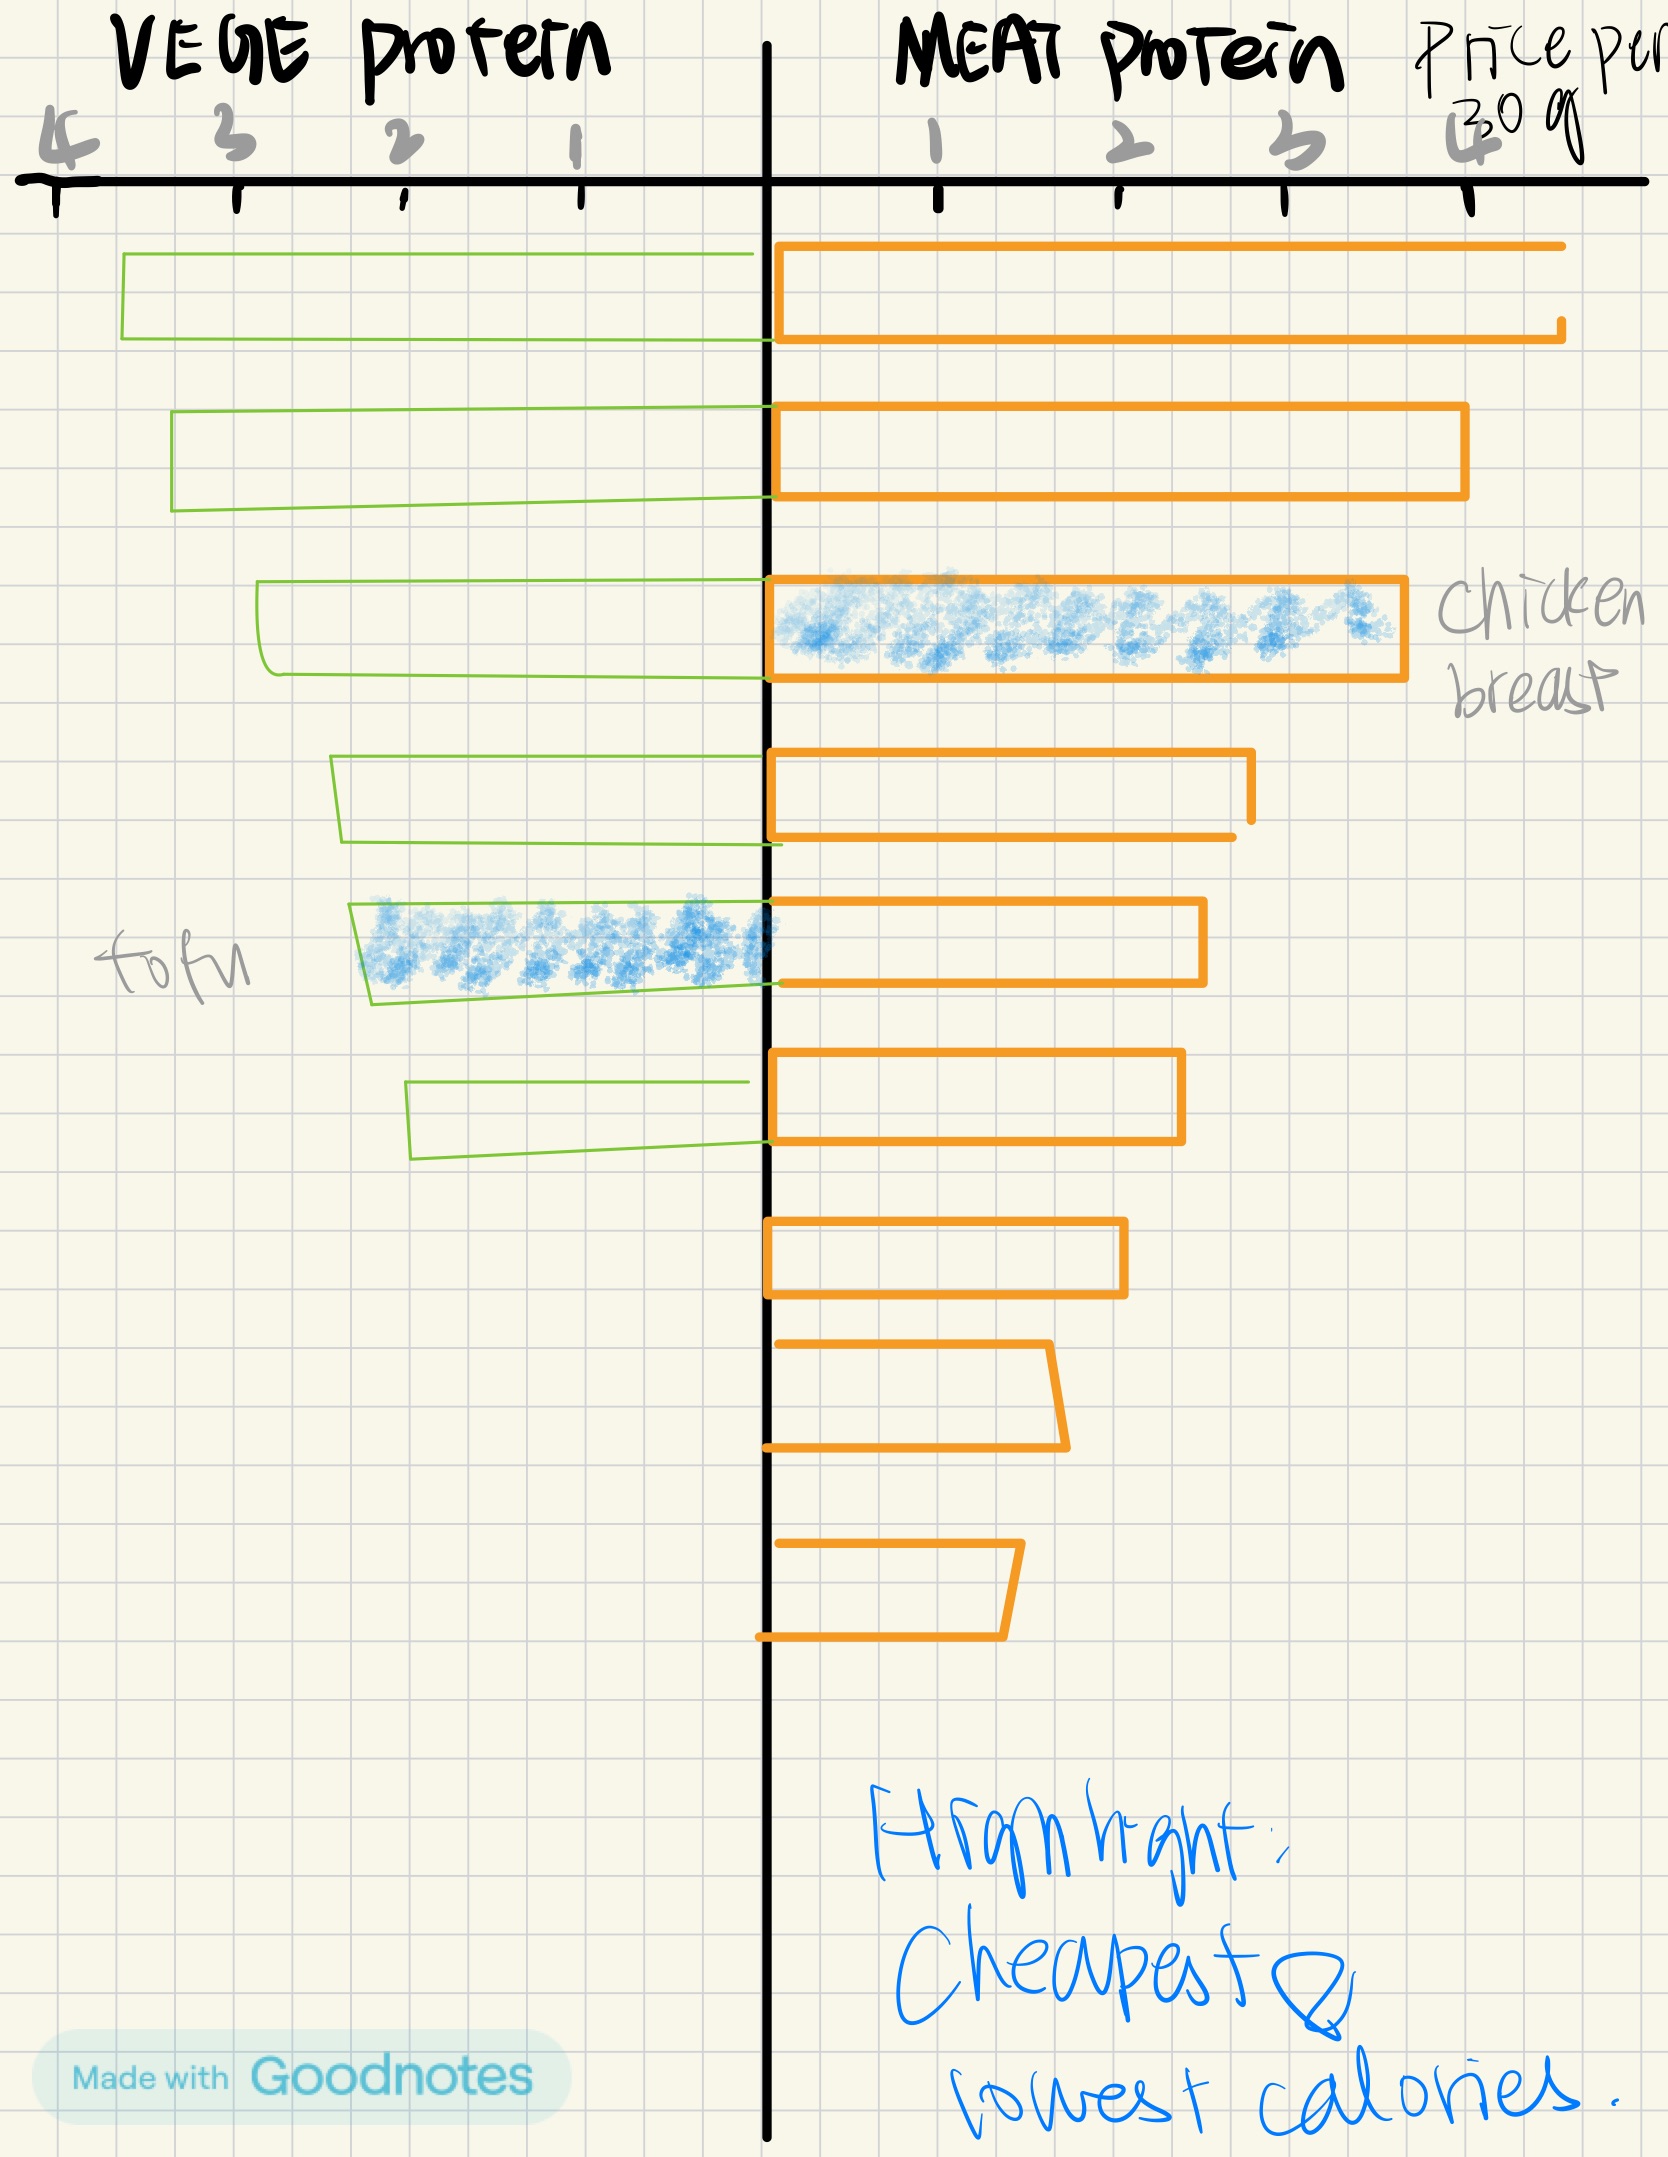 VEGE protein
MEAT protein
Price per
30 g
4 3 2 1 1 2 3 4
chicken
breast
tofu
Highlight:
Cheapest &
lowest calories.
Made with Goodnotes